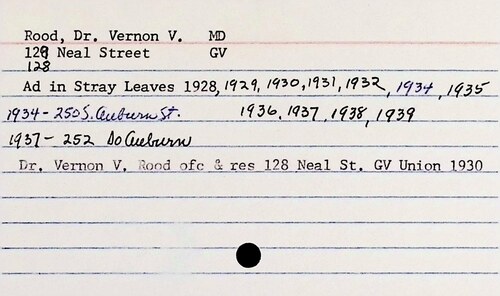 Rood, Dr. Vernon V. MD
129 Neal Street GV
128
Ad in Stray Leaves 1928, 1929, 1930, 1931, 1932, 1934, 1935
1934 - 250 S. Auburn St. 1936, 1937, 1938, 1939
1937 - 252 So Auburn
Dr. Vernon V. Rood ofc & res 128 Neal St. GV Union 1930